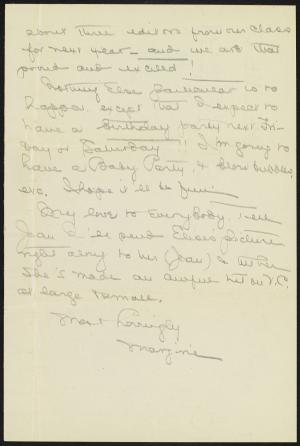 about three editors from our class
for next year - and we are that
proud and excited!
Nothing else particular is to
happen except that I expect to
have a birthday party next Fri-
day or Saturday! I'm going to
have a Baby Party, & blow bubbles,
etc. I hope it'll be fun.
My love to Everybody. Tell
Jean I'll send picture
right along to her (Jean) &
She's made an awful hit on V.C.
at large
Most Lovingly
Marjorie